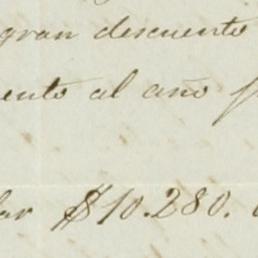 gran descuento
ento al año
$10.280.